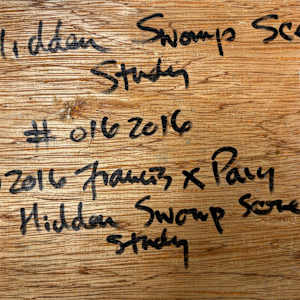 Hidden Swamp
Study
# 0162016
2016 Francis X Pavy
Hidden Swamp
Study